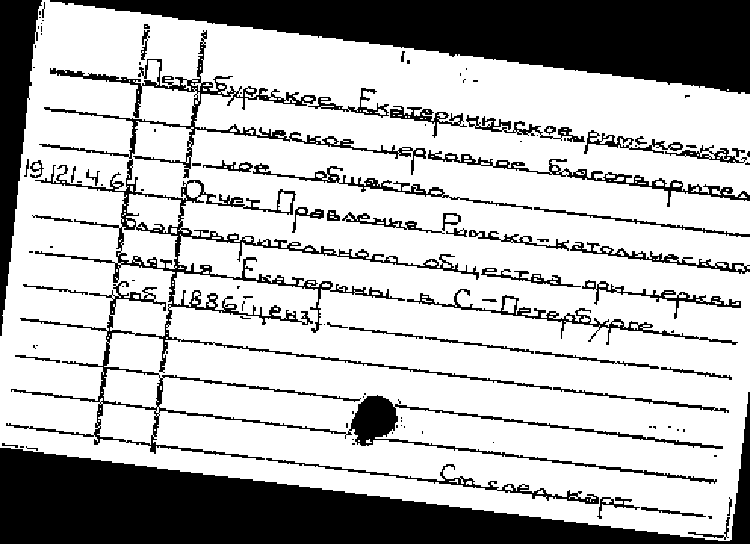 1.
Петербургское Екатерининское римско-като
лическое церковное благотворитель
ное общество.
19.121.4.6д. Отчет Правления Римско-католического
благотворительного общества при церкви
святыя Екатерины в С.-Петербурге.
Спб. 1886[ценз].
См. след. карт.